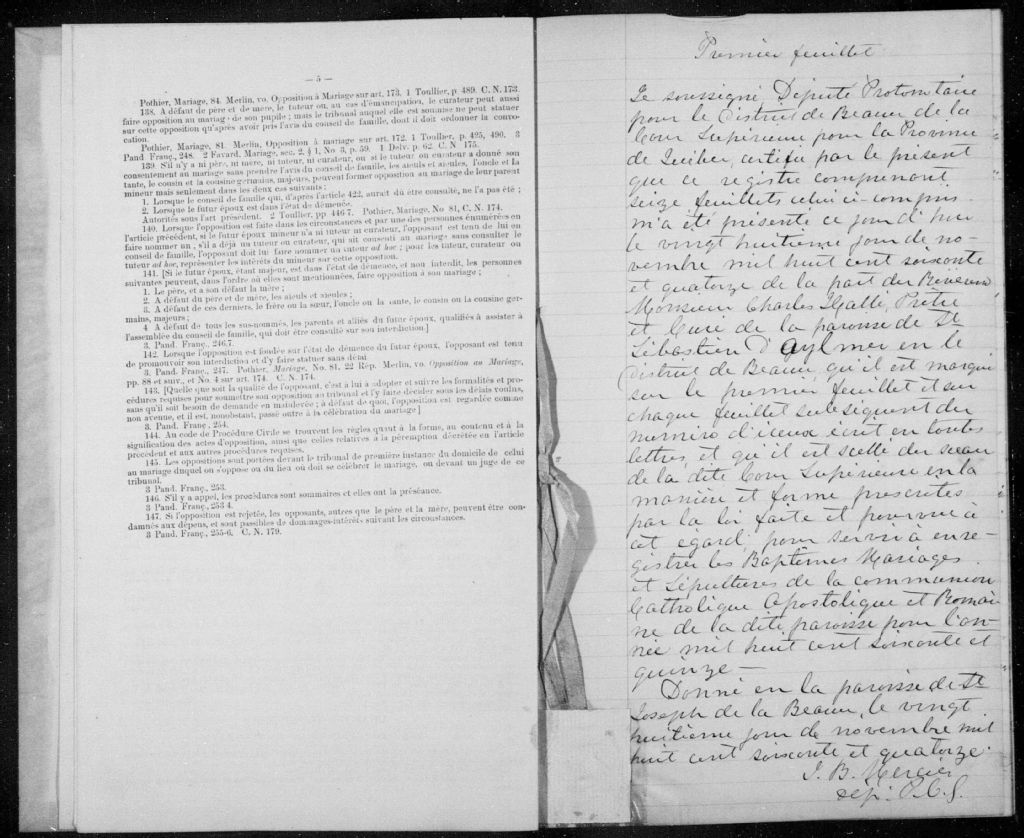 — 5 —
Pothier, Mariage, 84. Merlin, vo. Opposition à Mariage sur art. 173. 1 Toullier, p 489. C. N. 173.
138. A défaut de père et de mère, le tuteur ou, au cas d'émancipation, le curateur peut aussi
faire opposition au mariage de son pupile ; mais le tribunal auquel elle est soumise ne peut statuer
sur cette opposition qu'après avoir pris l'avis du conseil de famille, dont il doit ordonner la convo-
cation.
Pothier, Mariage, 81. Merlin, Opposition à mariage sur art. 172. 1 Toullier, p. 425, 490. 3
Pand Franç., 248. 2 Favard. Mariage, sec. 2, § 1, No 3, p. 59. 1 Dslv. p. 62. C. N. 175.
139. S'il n'y a ni père, ni mère, ni tuteur, ni curateur, ou si le tuteur ou curateur a donné son
consentement au mariage sans prendre l'avis du conseil de famille, les aïeuls et aïeules, l'oncle et la
tante, le cousin et la cousine germains, majeurs, peuvent former opposition au mariage de leur parent
mineur mais seulement dans les deux cas suivants :
1. Lorsque le conseil de famille qui, d'après l'article 422, aurait dû être consulté, ne l'a pas été ;
2. Lorsque le futur époux est dans l'état de démence.
Autorités sous l'art précédent. 2 Toullier, pp 446 7. Pothier, Mariage, No 81, C. N. 174.
140. Lorsque l'opposition est faite dans les circonstances et par une des personnes énumérées en
l'article précédent, si le futur époux mineur n'a ni tuteur ni curateur, l'opposant est tenu de lui en
faire nommer un ; s'il a déjà un tuteur ou curateur, qui ait consenti au mariage sans consulter le
conseil de famille, l'opposant doit lui faire nommer un tuteur ad hoc ; pour les tuteur, curateur ou
tuteur ad hoc, représenter les intérêts du mineur sur cette opposition.
141. [Si le futur époux, étant majeur, est dans l'état de démence, et non interdit, les personnes
suivantes peuvent, dans l'ordre où elles sont mentionnées, faire opposition à son mariage ;
1. Le père, et à son défaut la mère ;
2. A défaut du père et de mère, les aïeuls et aïeules ;
3. A défaut de ces derniers, le frère ou la sœur, l'oncle ou la tante, le cousin ou la cousine ger-
mains, majeurs ;
4 A défaut de tous les sus-nommés, les parents et alliés du futur époux, qualifiés à assister à
l'assemblée du conseil de famille, qui doit être consulté sur son interdiction.]
3. Pand. Franç., 246.7.
142. Lorsque l'opposition est fondée sur l'état de démence du futur époux, l'opposant est tenu
de promouvoir son interdiction et d'y faire statuer sans délai
3. Pand. Franç., 247. Pothier, Mariage, No. 81, 22 Rép. Merlin, vo. Opposition au Mariage,
pp. 88 et suiv., et No. 4 sur art. 174. C. N. 174.
143. [Quelque soit la qualité de l'opposant, c'est à lui à adopter et suivre les formalités et pro-
cédures requises pour soumettre son opposition au tribunal et l'y faire décider sous les délais voulus,
sans qu'il soit besoin de demande en mainlevée ; à défaut de quoi, l'opposition est regardée comme
non avenue, et il est, nonobstant, passé outre à la célébration du mariage]
3. Pand. Franç., 254.
144. Au code de Procédure Civile se trouvent les règles quant à la forme, au contenu et à la
signification des actes d'opposition, ainsi que celles relatives à la péremption décrétée en l'article
précédent et aux autres procédures requises.
145. Les oppositions sont portées devant le tribunal de première instance du domicile de celui
au mariage duquel on s'oppose ou du lieu où doit se célébrer le mariage, ou devant un juge de ce
tribunal.
3 Pand. Franç., 253.
146. S'il y a appel, les procédures sont sommaires et elles ont la préséance.
3 Pand. Franç., 253 4.
147. Si l'opposition est rejetée, les opposants, autres que le père et la mère, peuvent être con-
damnés aux dépens, et sont passibles de dommages-intérêts suivant les circonstances.
3 Pand. Franç., 255-6. C. N. 179.
Premier feuillet
Je soussigné Député Protonotaire
pour le District de Beauce de la
Cour Supérieure pour la Province
de Québec, certifie par le présent
que ce registre comprenant
seize feuillets celui ci-compris
m'a été présenté ce jour d'hui
le vingt huitième jour de no-
vembre mil huit cent soixante
et quatorze de la part du Révérend
Monsieur Charles Hallé, Prêtre
et Curé de la paroisse de St
Sébastien d'Aylmer en le
District de Beauce, qu'il est marqué
sur le premier feuillet et sur
chaque feuillet subséquent du
numéro d'iceux écrit en toutes
lettres, et qu'il est scellé du sceau
de la dite Cour Supérieure en la
manière et forme prescrites
par la loi faite et pourvue à
cet égard pour servir à enre-
gistrer les Baptêmes Mariages
et Sépultures de la communion
Catholique Apostolique et Romai-
ne de la dite paroisse pour l'an-
née mil huit cent soixante et
quinze —
Donné en la paroisse de St
Joseph de la Beauce, le vingt
huitième jour de novembre mil
huit cent soixante et quatorze.
J. B. Mercier
dép. P.C.S.